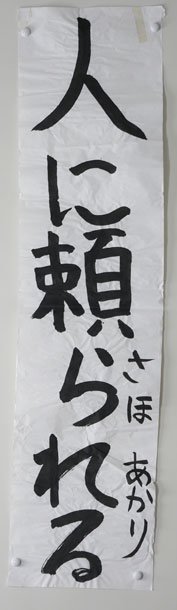 人に頼られる
さほ あかり